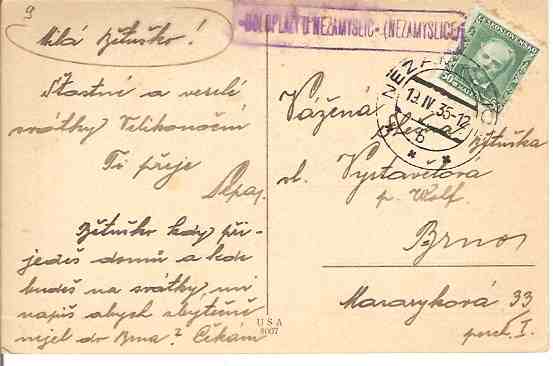 9
Milá Bětuško!
Šťastné a veselé
svátky Velikonoční
Ti přeje
Pepa.
Bětuško kdy při-
jedeš domů a kde
budeš na svátky, mi
napiš abych zbytečně
nijel do Brna? Čekám
DOLOPLAZY U NEZAMYSLIC (NEZAMYSLICE)
ČESKOSLOVENSKO
50
NĚZAMYSLICE
19.IV.35-12
6
Vážená
Bětuška
sl. Vystavělová
p. Wolf.
Brno
Masarykova 33
posch. I.
USA
8007